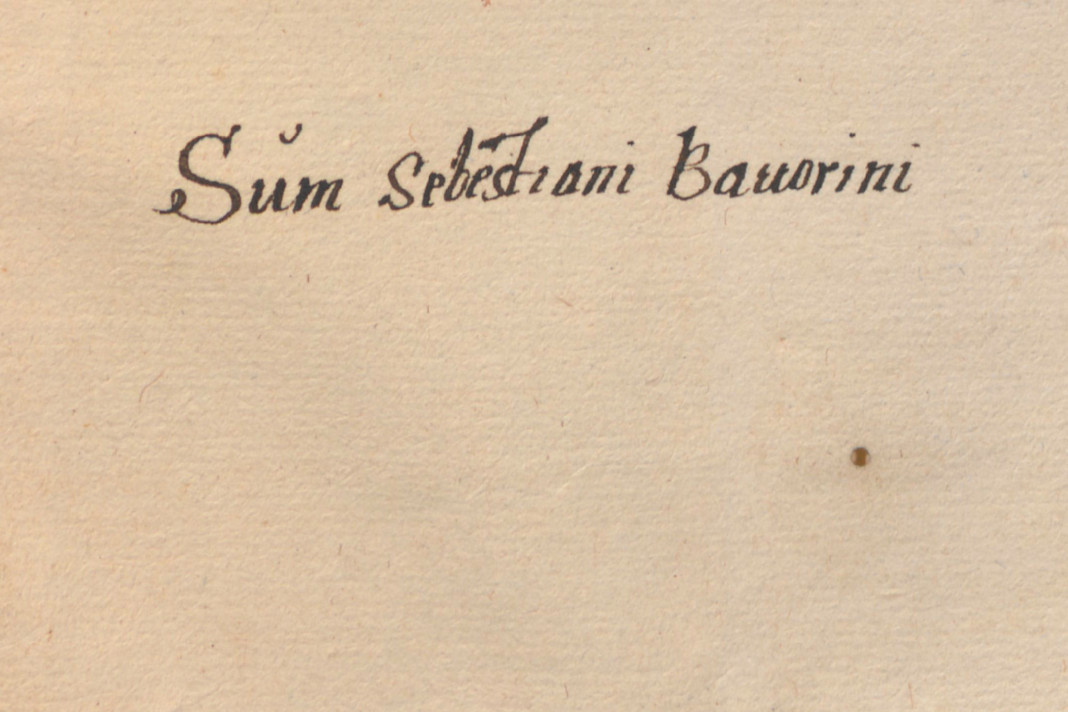 Sŭm Sebestiani Bauorini